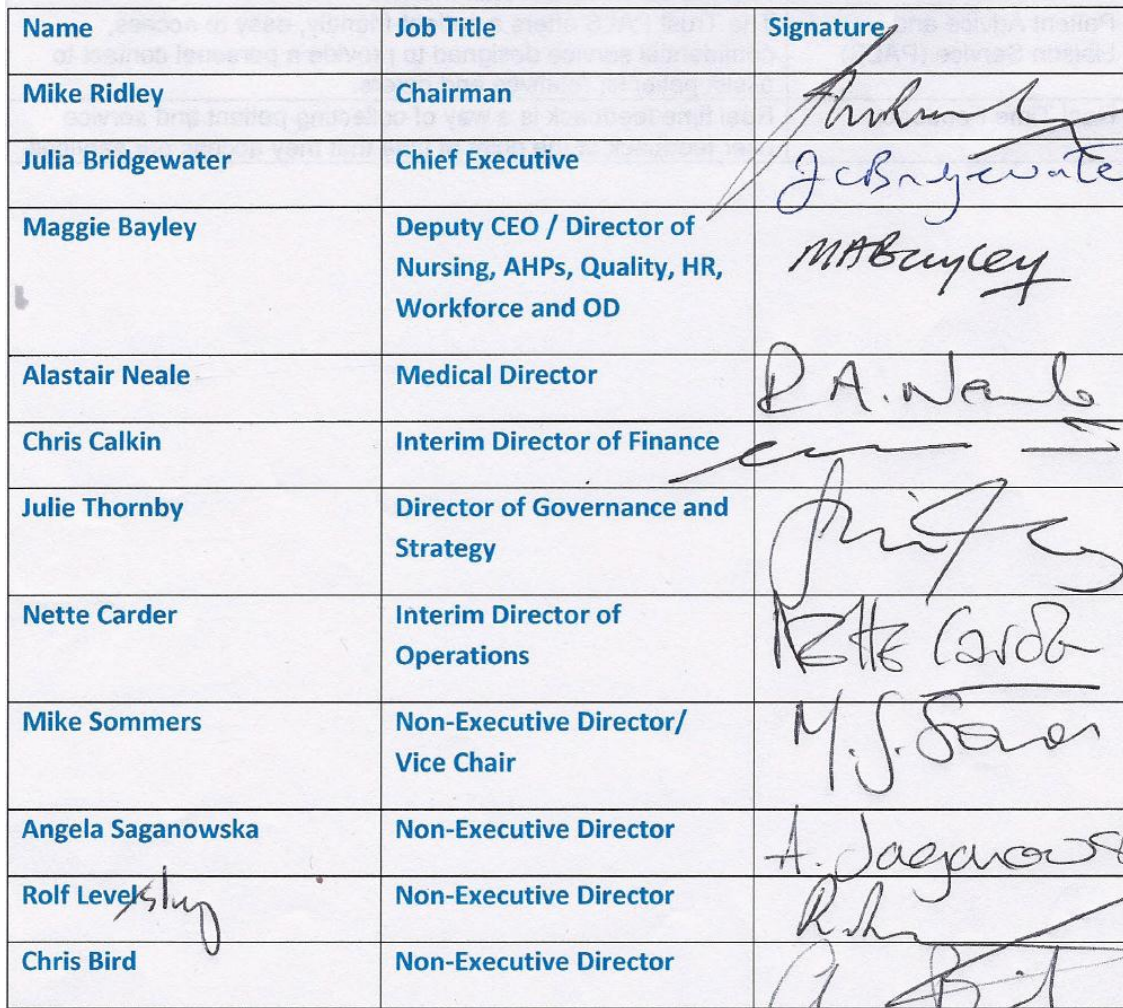 Name Job Title Signature
Mike Ridley Chairman
Julia Bridgewater Chief Executive JCBridgewate
Maggie Bayley Deputy CEO / Director of MABayley
Nursing, AHPs, Quality, HR,
Workforce and OD
Alastair Neale Medical Director R A. Neale
Chris Calkin Interim Director of Finance
Julie Thornby Director of Governance and
Strategy
Nette Carder Interim Director of NETTE Carder
Operations
Mike Sommers Non-Executive Director/ M. J. Somers
Vice Chair
Angela Saganowska Non-Executive Director A. Saganows
Rolf Levesley Non-Executive Director
Chris Bird Non-Executive Director C Bird